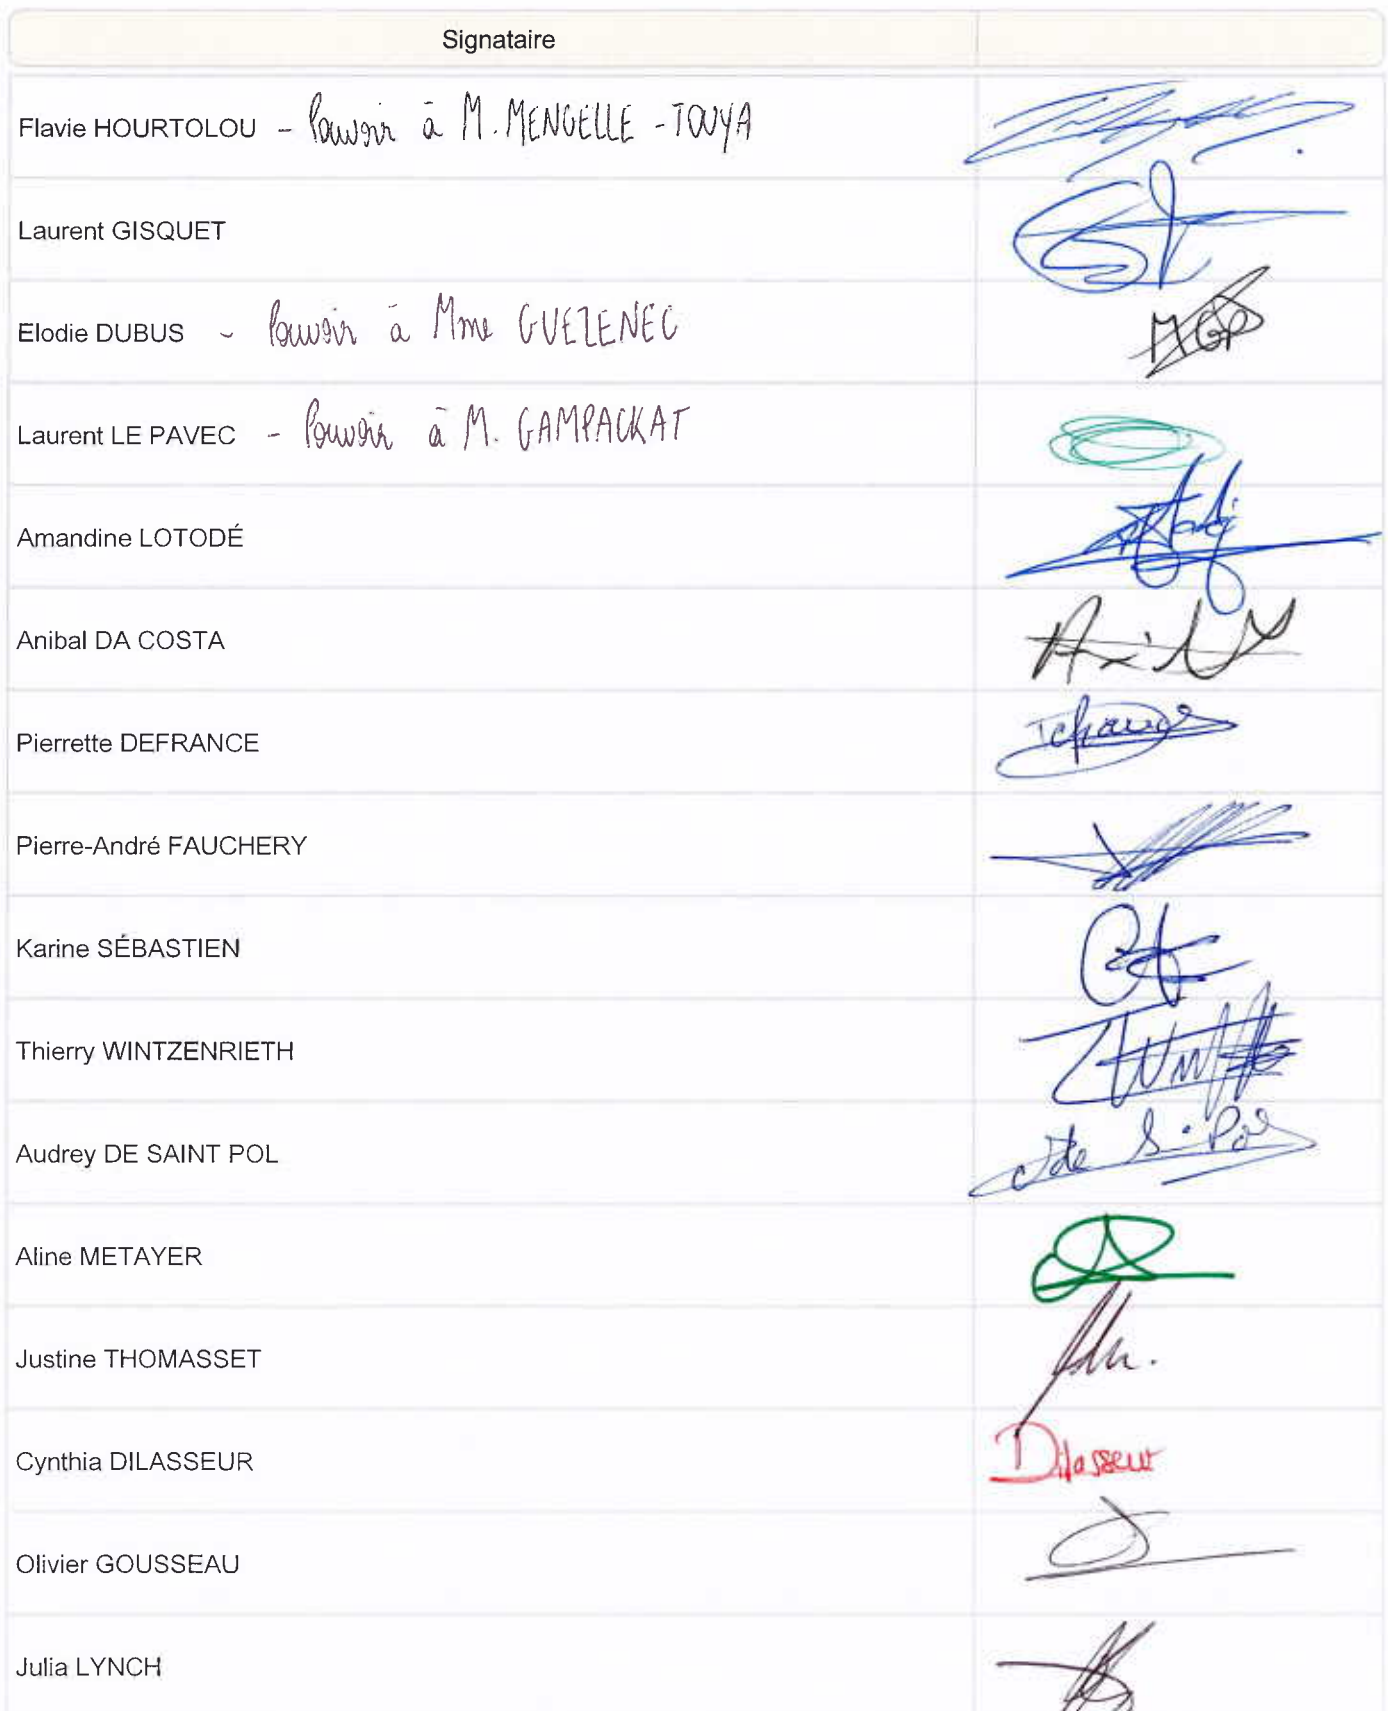 Signataire
Flavie HOURTOLOU - Pouvoir à M. MENGELLE-TOUYA
Laurent GISQUET
Elodie DUBUS - Pouvoir à Mme GUEZENEC
MGP
Laurent LE PAVEC - Pouvoir à M. GAMPACKAT
Amandine LOTODÉ
Anibal DA COSTA
Pierrette DEFRANCE
Pierre-André FAUCHERY
Karine SÉBASTIEN
Thierry WINTZENRIETH
Audrey DE SAINT POL
Aline METAYER
Justine THOMASSET
Cynthia DILASSEUR Dilasseur
Olivier GOUSSEAU
Julia LYNCH